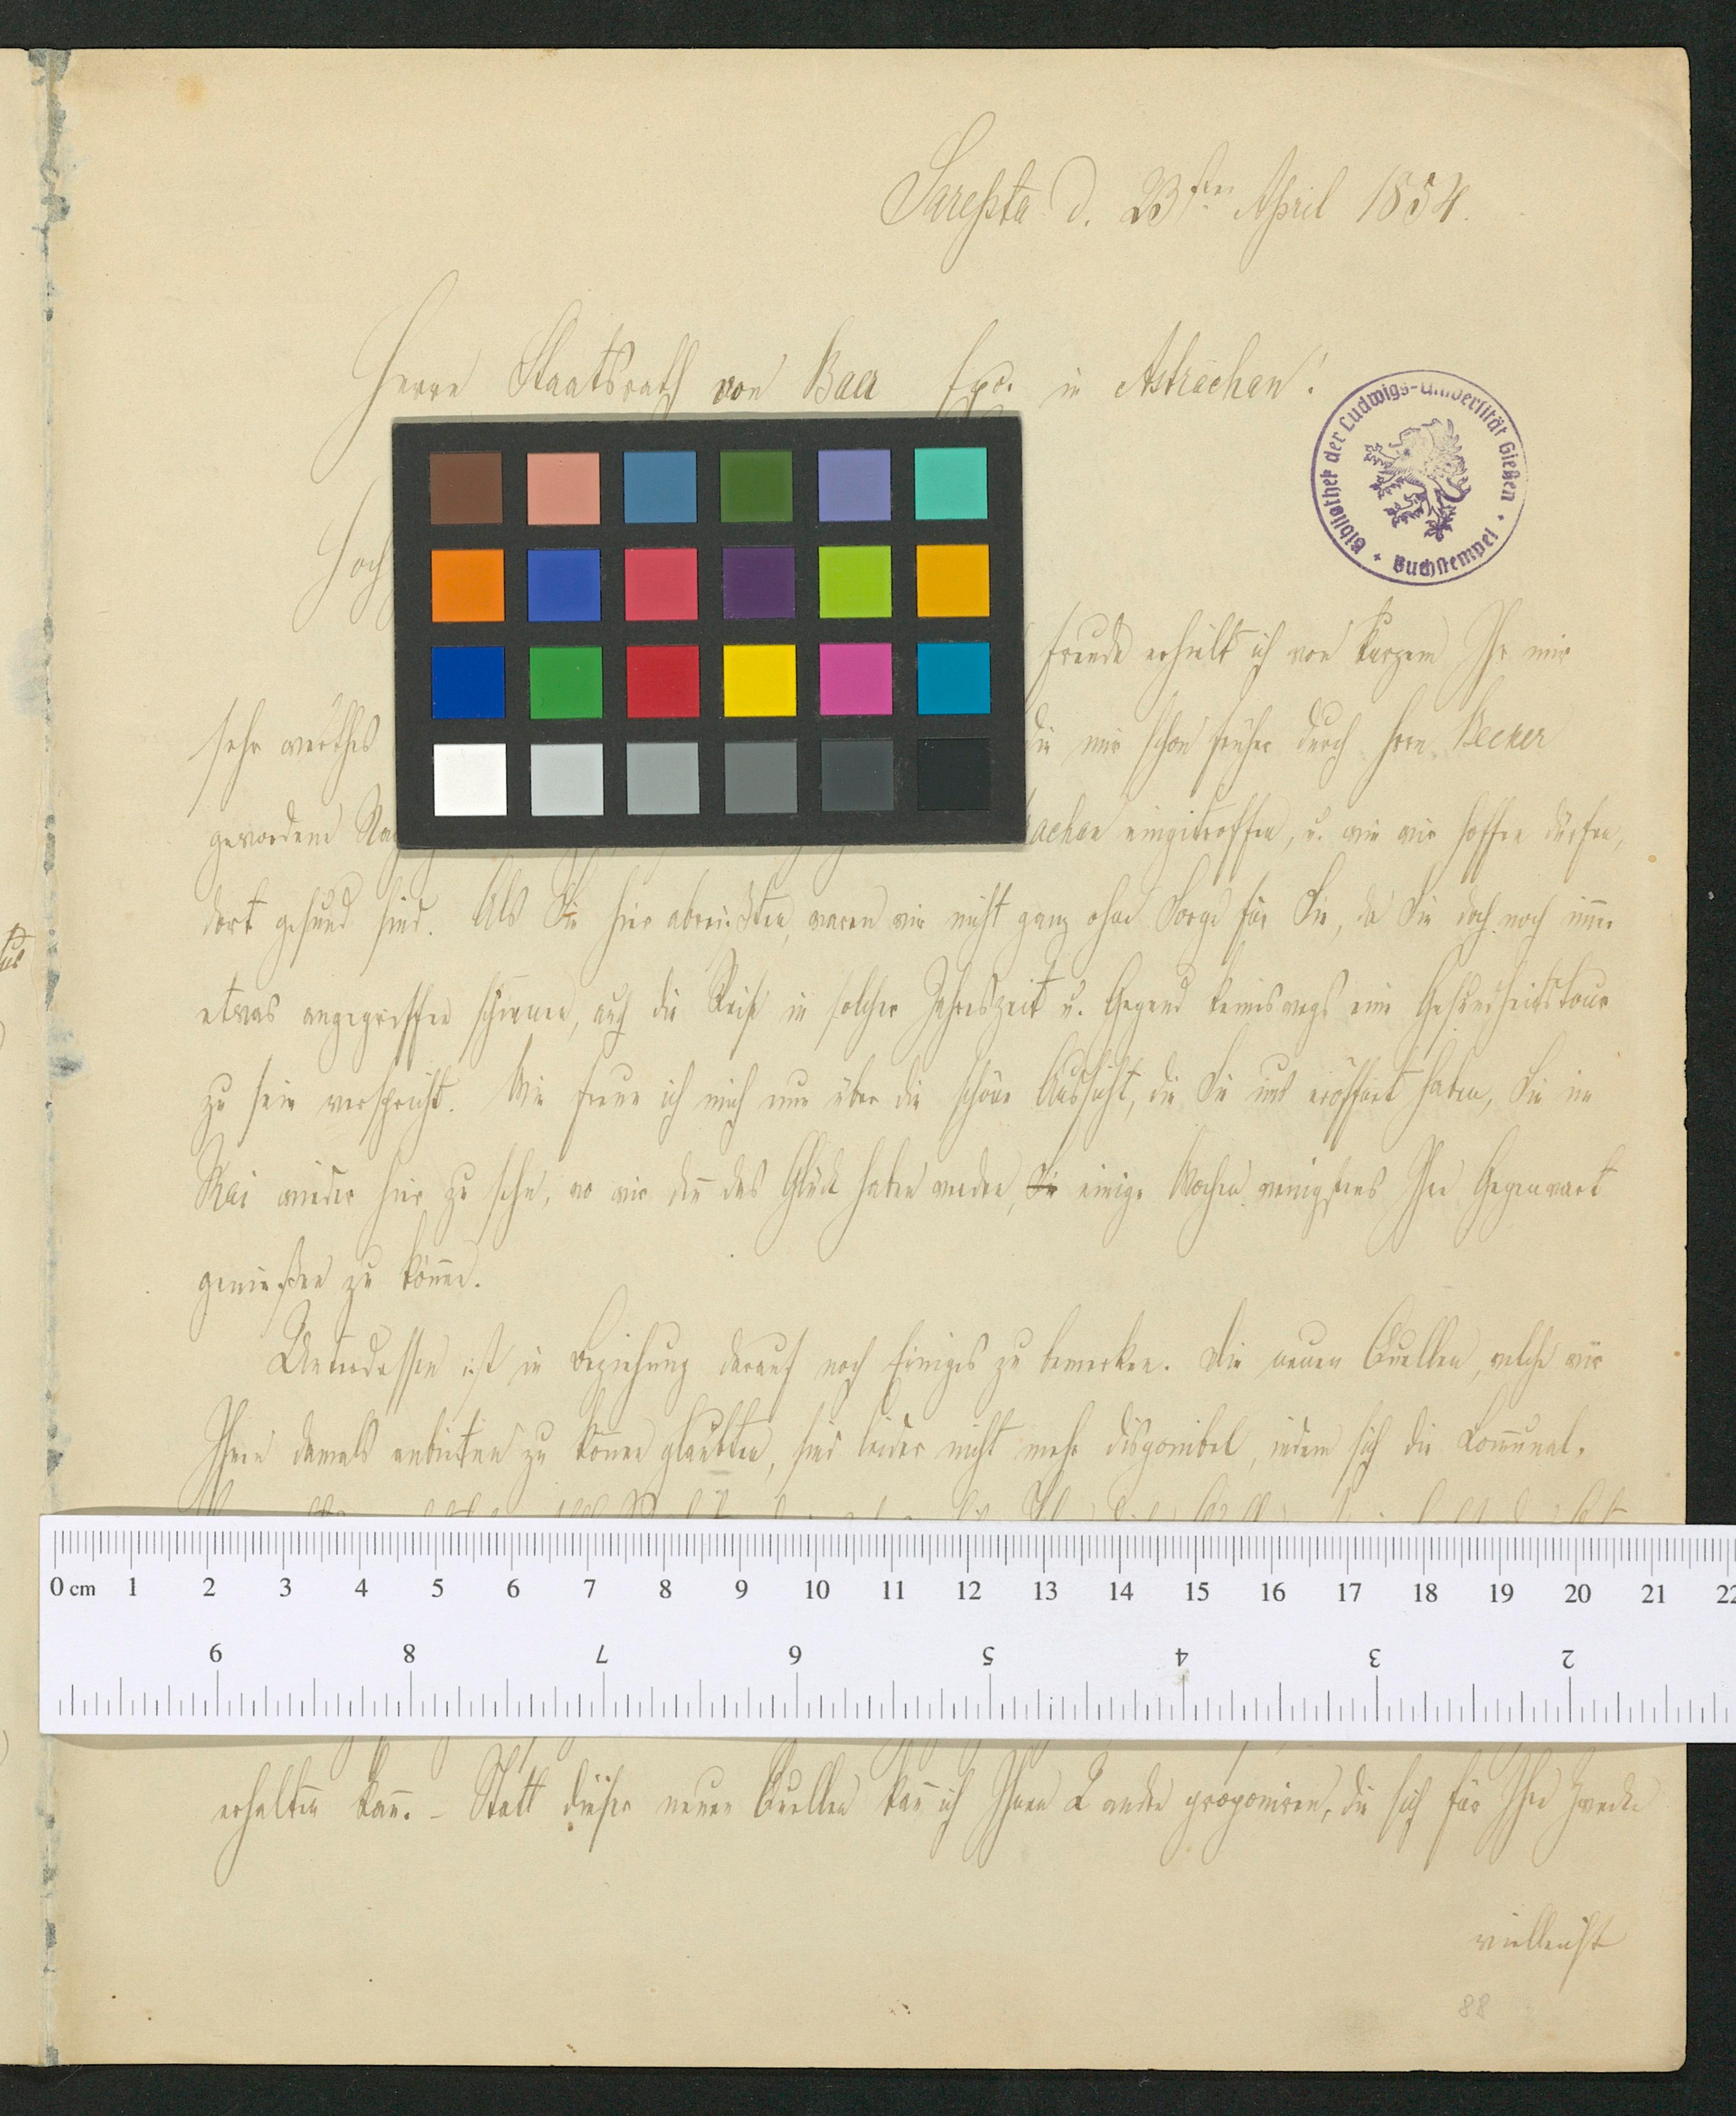 Sarepta d. 23sten April 1854.
Herrn Staatsrath von Baer Exc. in Astrachan!
Bibliothek der Ludwigs-Universität Gießen
Buchstempel
Hoch
Freude erhielt ich vor kurzem Ihr mir
sehr werthes
die mir schon früher durch Herrn Becker
gewordene Nach
achan eingetroffen, u. wie wir hoffen dürfen,
dort gesund sind. Als Sie hier abreisten, waren wir nicht ganz ohne Sorge für Sie, da Sie doch noch immer
etwas angegriffen schienen, auch die Reise in solcher Jahreszeit u. Gegend keineswegs eine Gesundheitstour
zu sein verspricht. Wie freue ich mich nun über die schöne Aussicht, die Sie uns eröffnet haben, Sie im
Mai wieder hier zu sehn, wo wir den̄ das Glück haben werden, Sie einige Wochen wenigstens Ihre Gegenwart
genießen zu kön̄en.
Unterdessen ist in Beziehung darauf noch Einiges zu bemerken. Die neuen Quellen, welche wir
Ihnen damals anbieten zu kön̄en glaubten, sind leider nicht mehr disponibel, indem sich die Com̄unal-
0 cm 1 2 3 4 5 6 7 8 9 10 11 12 13 14 15 16 17 18 19 20 21 22
9 8 7 6 5 4 3 2
erhalten kan̄. – Statt dieser neuen Quellen kan̄ ich Ihnen 2 andre proponiren, die sich für Ihre Zwecke
vielleicht
88